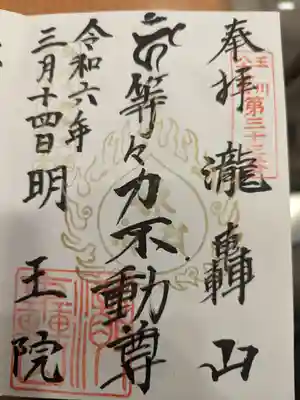 玉川
第三十三
奉拝 瀧轟山
等々力不動尊
令和六年
三月十四日 明王院